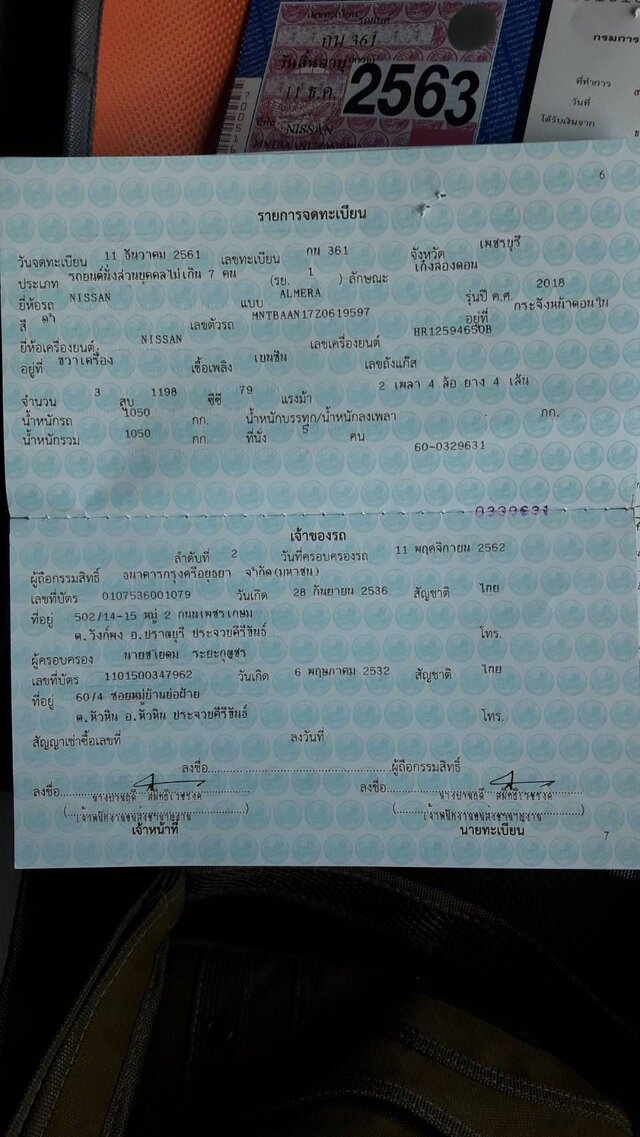 เลขทะเบียน รถยนต์
กน 361
วันสิ้นอายุ
11 ธ.ค. 2563
NISSAN
กรมการ
ที่ทำการ
วันที่
ได้รับเงินจาก
6
รายการจดทะเบียน
วันจดทะเบียน 11 ธันวาคม 2561 เลขทะเบียน กน 361 จังหวัด เพชรบุรี
ประเภท รถยนต์นั่งส่วนบุคคลไม่เกิน 7 คน (รย. 1 ) ลักษณะ เก๋งสองตอน
ยี่ห้อรถ NISSAN แบบ ALMERA รุ่นปี ค.ศ. 2018
สี ดำ เลขตัวรถ MNTBAAN17Z0619597 อยู่ที่ กระจังหน้าตอนใน
ยี่ห้อเครื่องยนต์ NISSAN เลขเครื่องยนต์ HR12594650B
อยู่ที่ ขวาเครื่อง เชื้อเพลิง เบนซิน เลขถังแก๊ส
จำนวน 3 สูบ 1198 ซีซี 79 แรงม้า 2 เพลา 4 ล้อ ยาง 4 เส้น
น้ำหนักรถ 1050 กก. น้ำหนักบรรทุก/น้ำหนักลงเพลา กก.
น้ำหนักรวม 1050 กก. ที่นั่ง 5 คน
60-0329631
เจ้าของรถ
ลำดับที่ 2 วันที่ครอบครองรถ 11 พฤศจิกายน 2562
ผู้ถือกรรมสิทธิ์ ธนาคารกรุงศรีอยุธยา จำกัด(มหาชน)
เลขที่บัตร 0107536001079 วันเกิด 28 กันยายน 2536 สัญชาติ ไทย
ที่อยู่ 502/14-15 หมู่ 2 ถนนเพชรเกษม
ต.วังก์พง อ.ปราณบุรี ประจวบคีรีขันธ์ โทร.
ผู้ครอบครอง
เลขที่บัตร 1101500347962 วันเกิด 6 พฤษภาคม 2532 สัญชาติ ไทย
ที่อยู่ 60/4 ซอยหมู่บ้านบ่อฝ้าย
ต.หัวหิน อ.หัวหิน ประจวบคีรีขันธ์ โทร.
สัญญาเช่าซื้อเลขที่ ลงวันที่
ลงชื่อ ผู้ถือกรรมสิทธิ์
ลงชื่อ ลงชื่อ
(เจ้าพนักงานขนส่งชำนาญงาน) (เจ้าพนักงานขนส่งชำนาญงาน)
เจ้าหน้าที่ นายทะเบียน
7